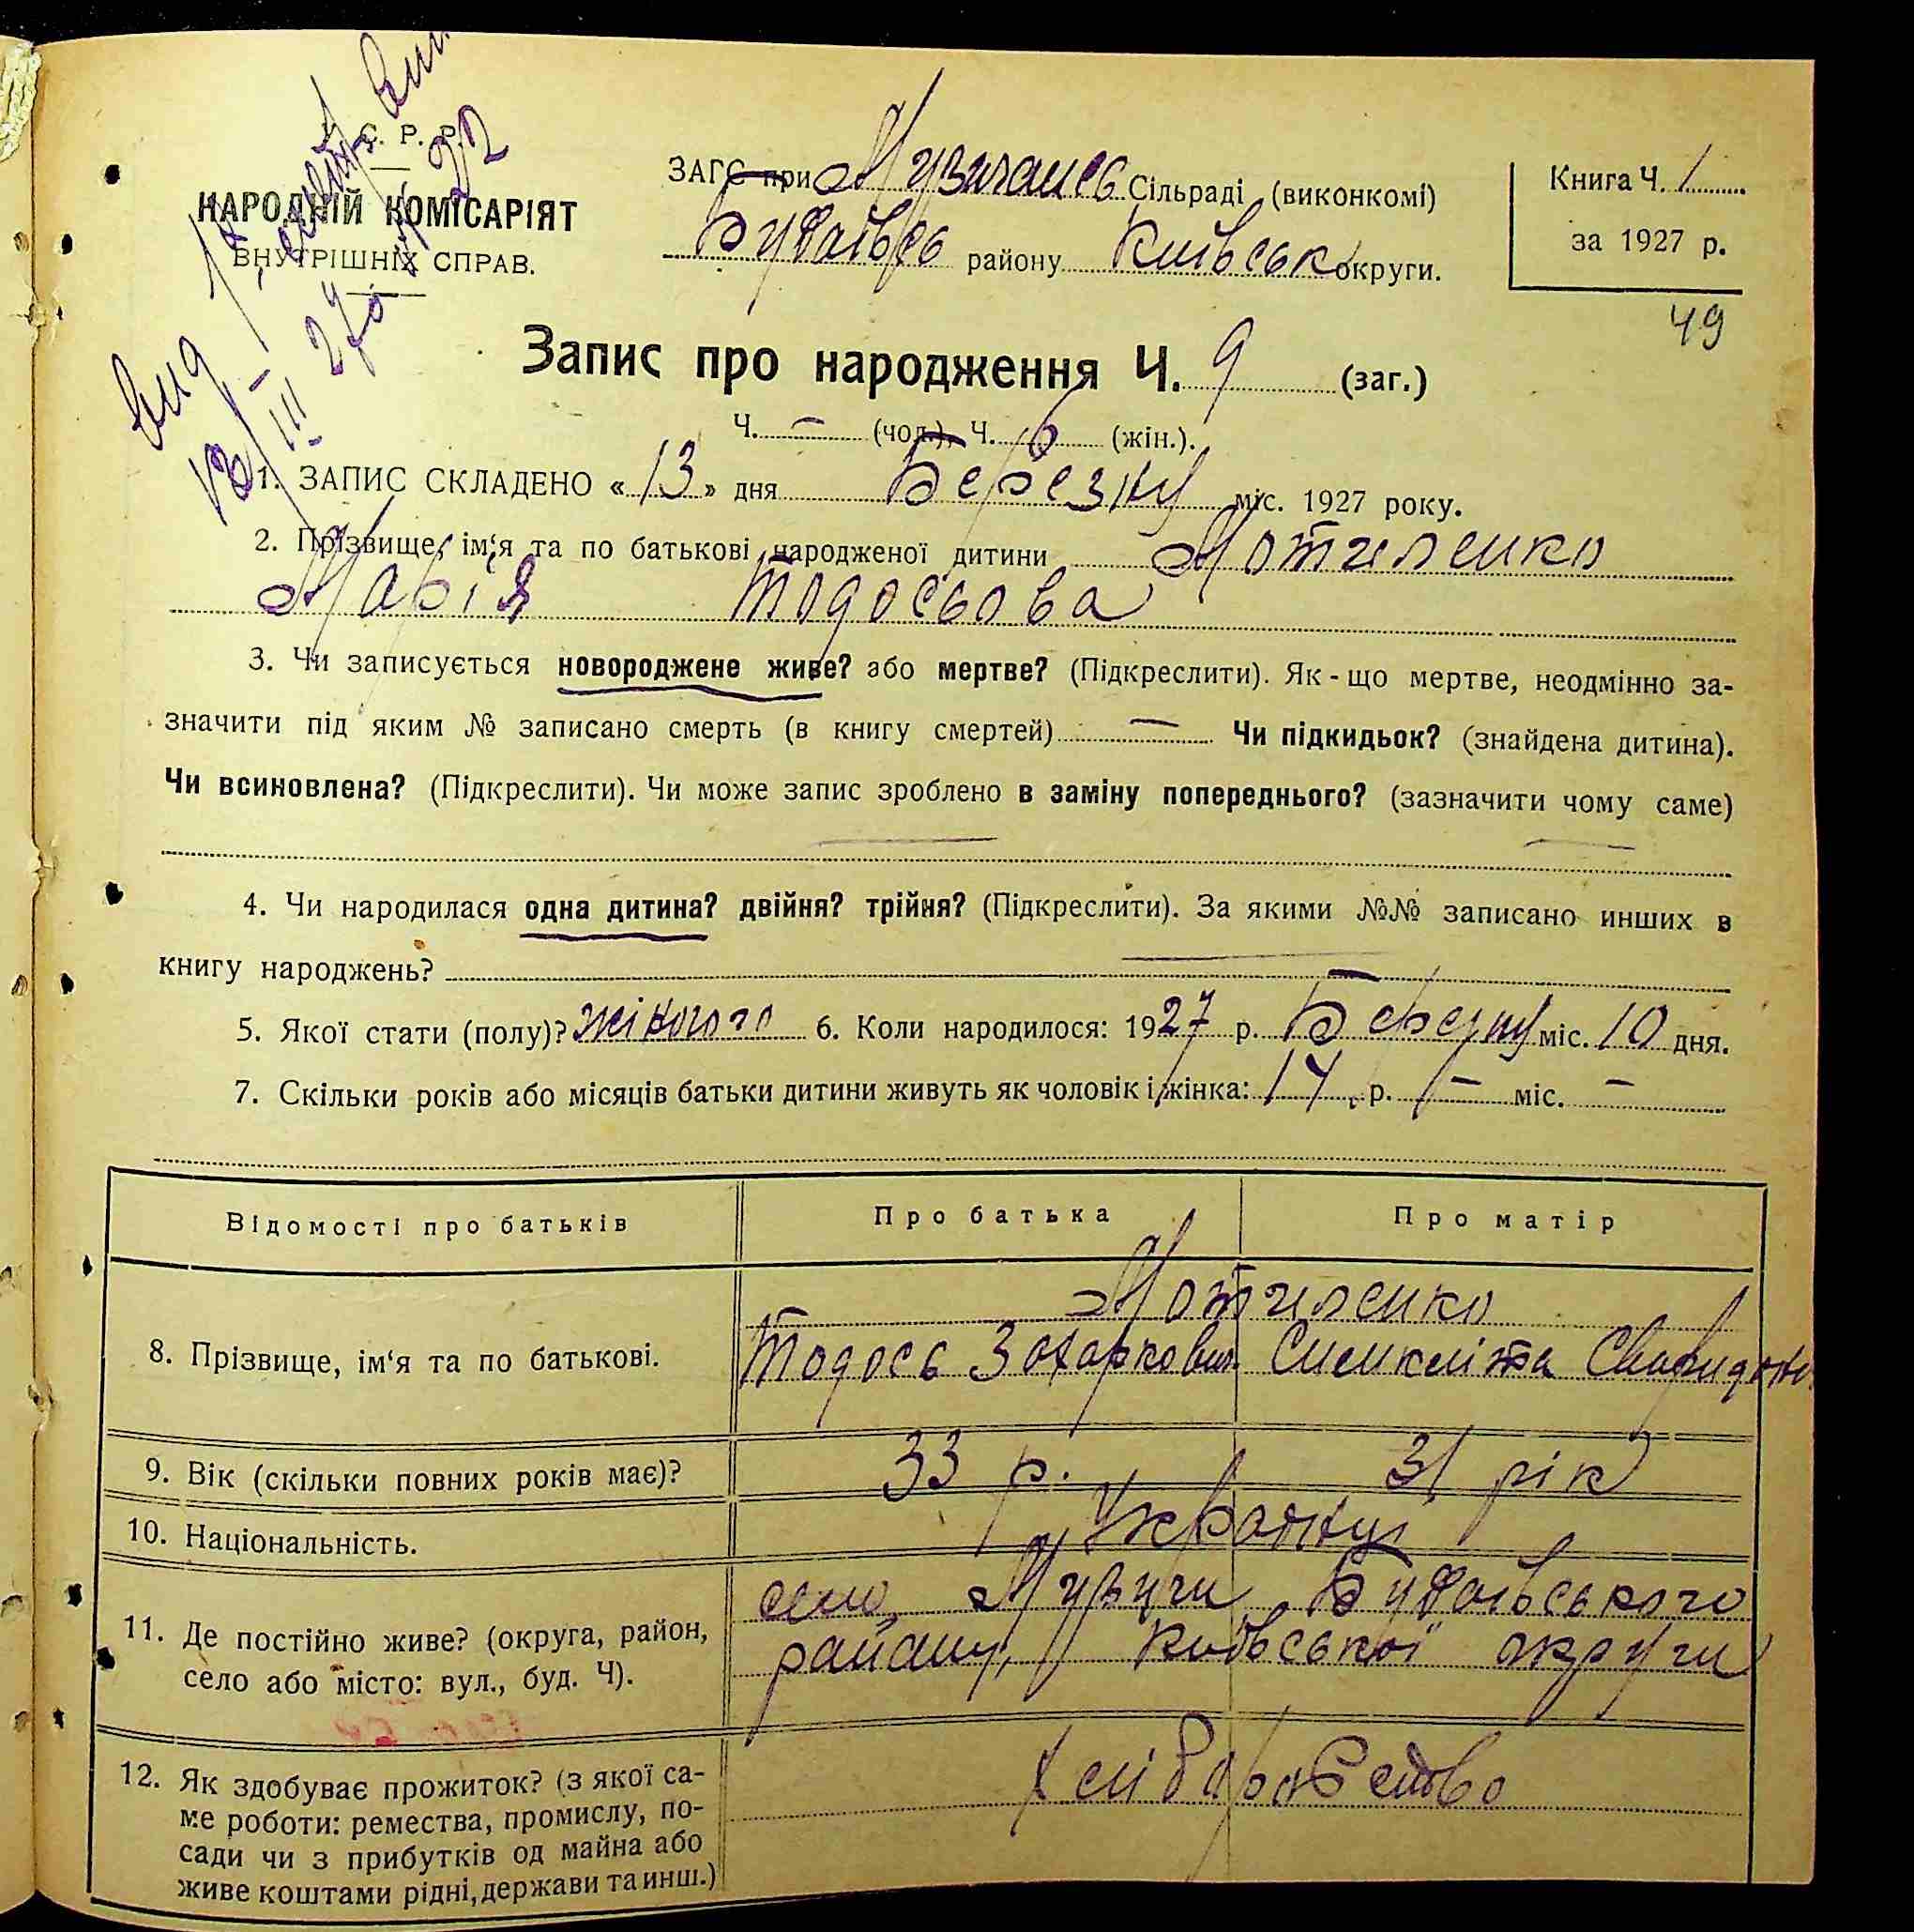 У. С. Р. Р.
НАРОДНІЙ КОМІСАРІЯТ
ВНУТРІШНІХ СПРАВ.
ЗАГС при Музичансь Сільраді (виконкомі)
Будаівсь району Київськ округи.
Книга Ч. 1
за 1927 р.
49
Запис про народження Ч. 9 (заг.)
Ч. – (чол.), Ч. 6 (жін.).
1. ЗАПИС СКЛАДЕНО «13» дня Березню міс. 1927 року.
2. Прізвище, ім‘я та по батькові народженої дитини Мотиленко
Марія Тодосьова
3. Чи записується новороджене живе? або мертве? (Підкреслити). Як-що мертве, неодмінно за-
значити під яким № записано смерть (в книгу смертей) — Чи підкидьок? (знайдена дитина).
Чи всиновлена? (Підкреслити). Чи може запис зроблено в заміну попереднього? (зазначити чому саме)
4. Чи народилася одна дитина? двійня? трійня? (Підкреслити). За якими №№ записано инших в
книгу народжень? —
5. Якої стати (полу)? жіночого 6. Коли народилося: 1927 р. Березню міс. 10 дня.
7. Скільки років або місяців батьки дитини живуть як чоловік і жінка: 14 р. – міс. –
Відомості про батьків Про батька Про матір
8. Прізвище, ім‘я та по батькові.
Мотиленко
Тодось Захаркович
9. Вік (скільки повних років має)? 33 р. 31 рік
10. Національність. Українці
11. Де постійно живе? (округа, район,
село або місто: вул., буд. Ч).
село, Музичи Будаівського
району, Київської округи
12. Як здобуває прожиток? (з якої са-
ме роботи: ремества, промислу, по-
сади чи з прибутків од майна або
живе коштами рідні, держави та инш.)
Хліборобство